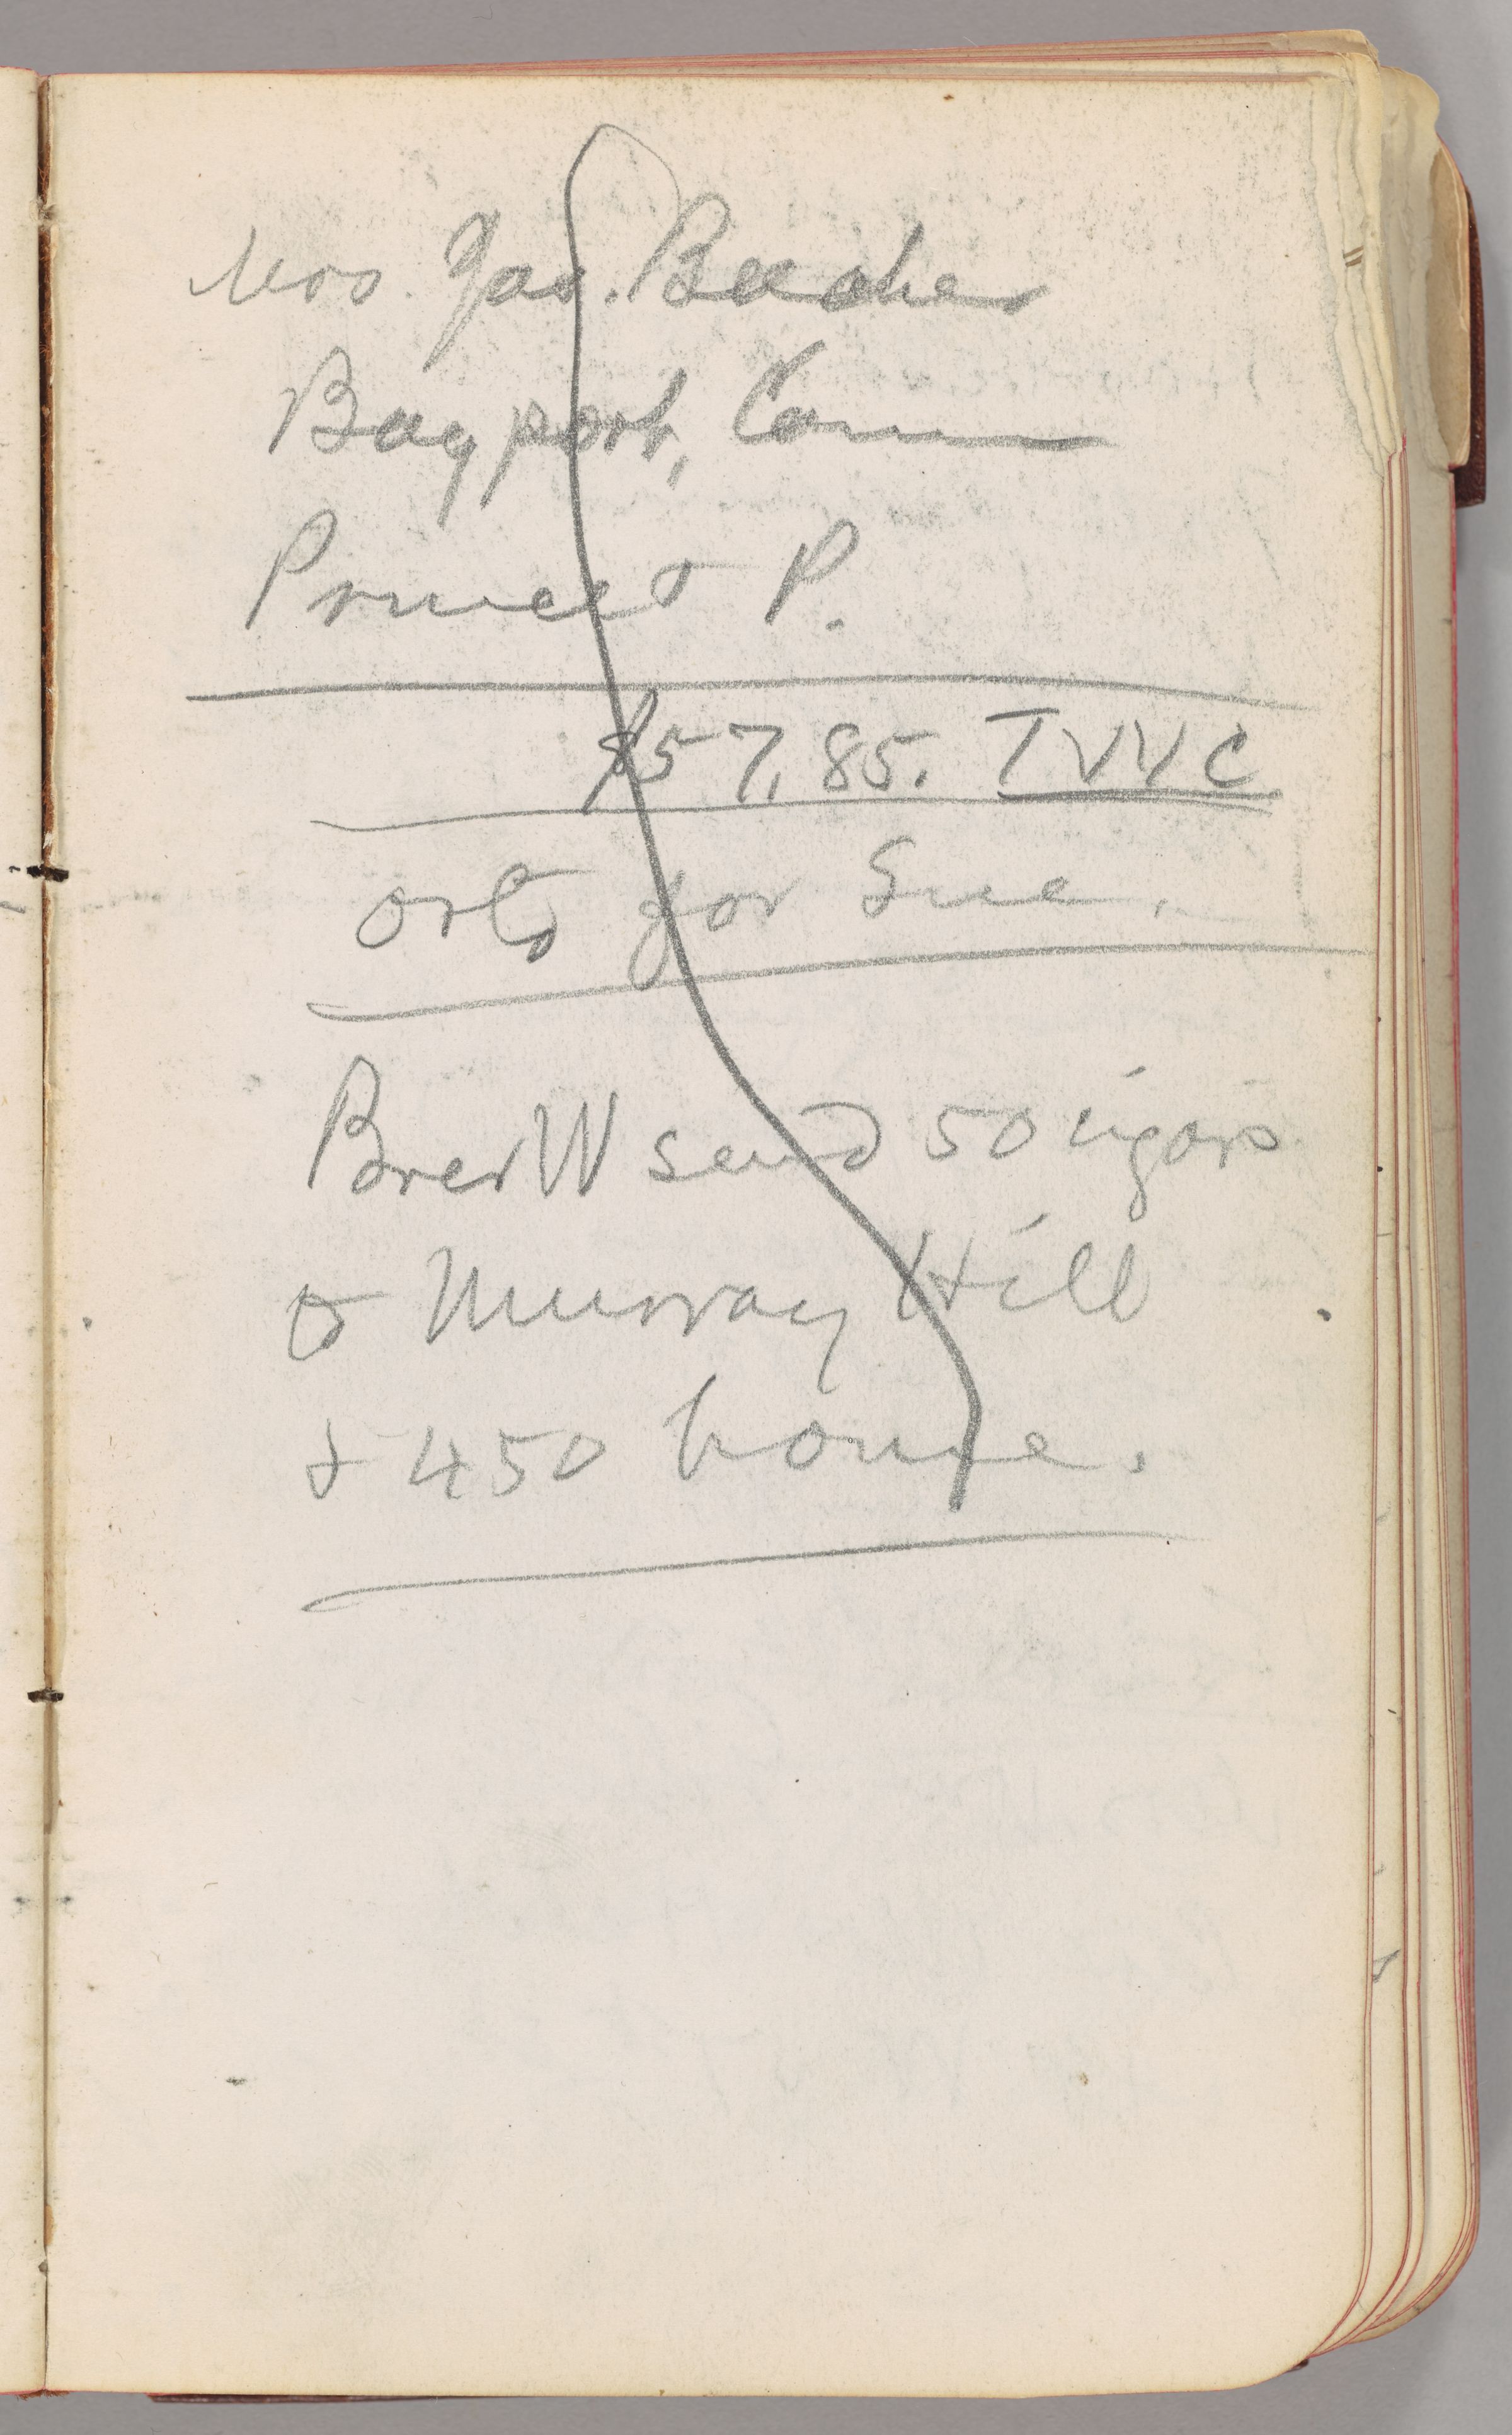 Mrs. Jas. Beecher
Bayport, Conn
Prince & P.
$57.85. TVYC
orts for Sue.
Brer W send 50 cigars
to Murray Hill
& 450 home.